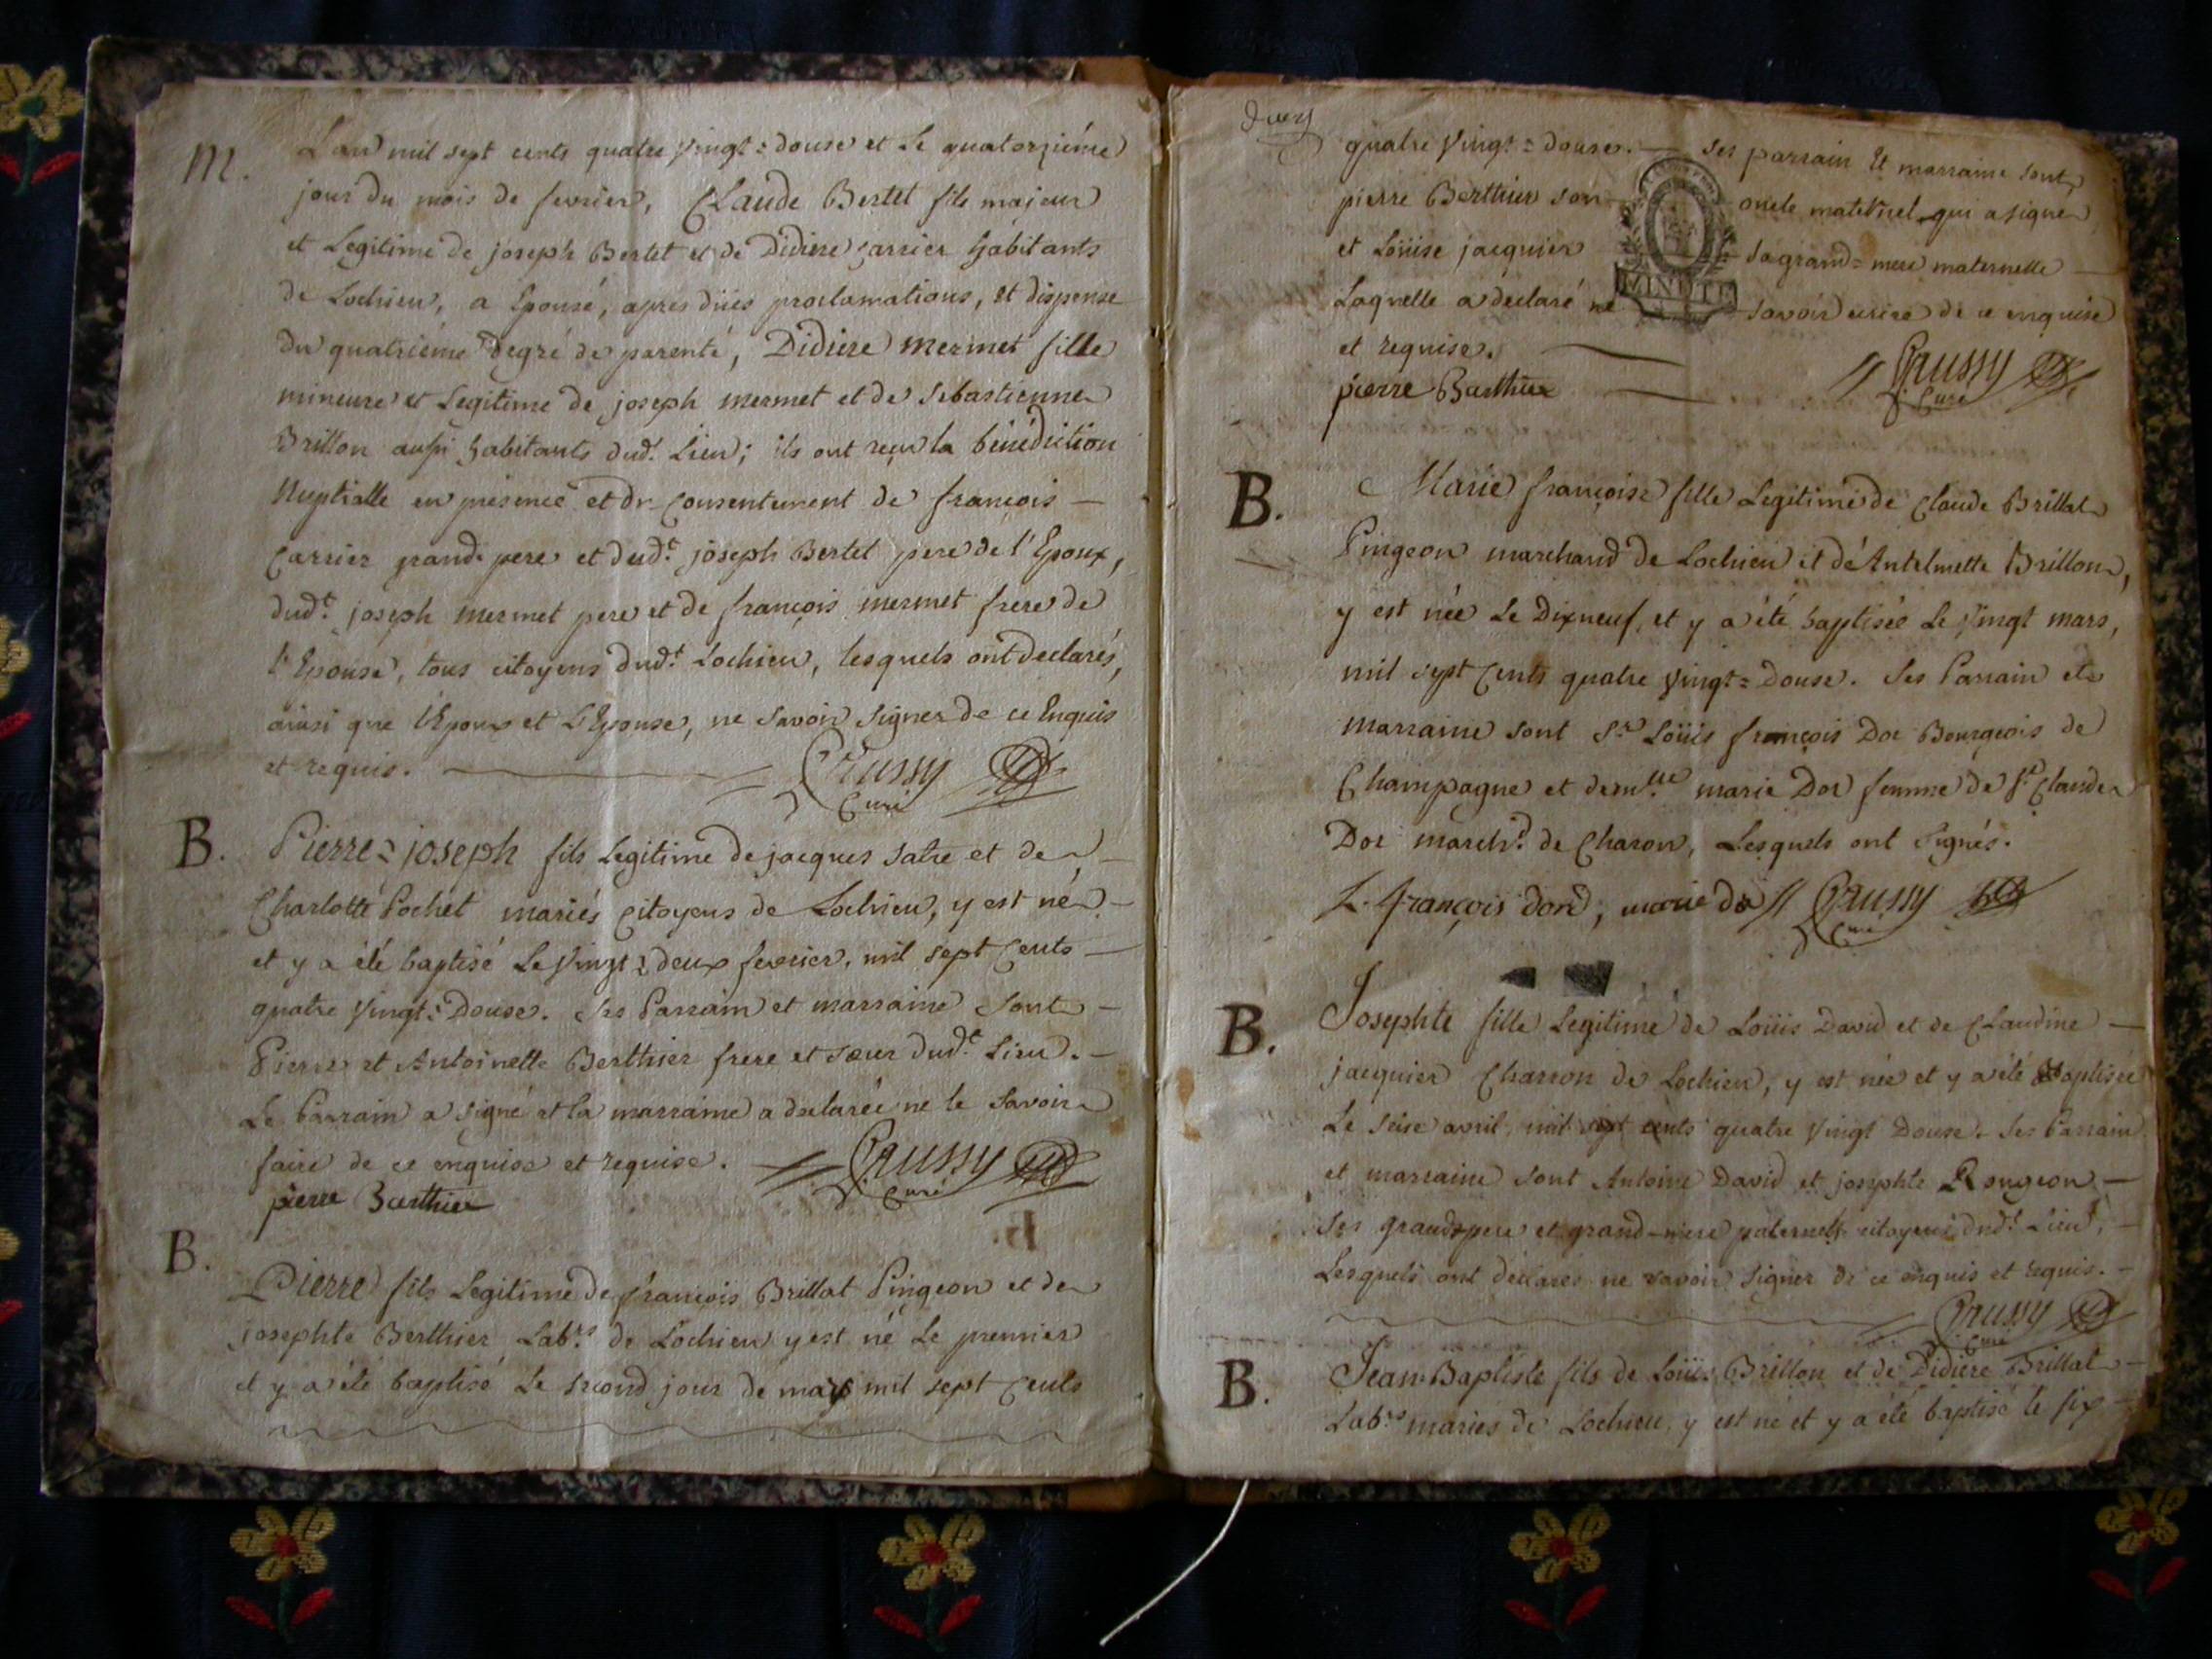 M.
L'an mil sept cents quatre vingt=douse et Le quatorziéme
jour du mois de fevrier, Claude Bertet fils majeur
et Legitime de joseph Bertet et de Didiere Carrier habitants
de Lochieu, a Epousé, apres dües proclamations, et dispense
du quatriéme degré de parenté, Didiere Mermet fille
mineure et Legitime de joseph Mermet et de Sebastienne
Brillon aussi habitants dud.t Lieu; ils ont reçu la bénédiction
Nuptialle en présence et du Consentement de françois —
Carrier grand pere et dud.t joseph Bertet pere de l'Epoux,
dud.t joseph mermet pere et de françois mermet frere de
l'Epouse, tous citoyens dud.t Lochieu, lesquels ont declarés,
ainsi que l'Epoux et L'Epouse, ne savoir signer de ce Enquis
et requis.
Curé
B.
Pierre=joseph fils Legitime de jacques Satre et de
Charlotte Pochet mariés Citoyens de Lochieu, y est né —
et y a été baptisé Le Vingt=deux fevrier, mil sept Cents —
quatre Vingt=Douse. Ses Parrain et marraine Sont —
Pierre et Antoinette Berthier frere et sœur dud.t Lieu. —
Le Parrain a signé et la marraine a declarée ne le Savoir
faire de ce enquise et requise.
Curé
pierre Barthier
B.
Pierre fils Legitime de françois Brillat Pingeon et de
josephte Berthier Lab.rs de Lochieu y est né Le premier
et y a été baptisé Le second jour de mars mil sept Cents
quatre Vingt=douse. — Ses parrain Et marraine sont
pierre Berthier son oncle maternel qui a signé
et Loüise jacquier sa grand=mere maternelle —
Laquelle a declaré ne savoir ecrire de ce enquise
et requise.
MINUTE
pierre Barthier
Curé
B.
Marie françoise fille Legitime de Claude Brillat
Pingeon marchand de Lochieu et d'Antelmette Brillon,
y est née Le Dixneuf, et y a été baptisée Le Vingt mars,
mil sept Cents quatre Vingt=Douse. Ses Parrain et
marraine sont S.r Loüis françois Dor Bourgeois de
Champagne et dem.lle marie Dor femme de S.r Claude
Dor march.d de Charon, Lesquels ont signés.
L. françois dord, marie do
Curé
B.
Josephte fille Legitime de Loüis David et de Claudine —
jacquier Charron de Lochieu, y est née et y a été Baptisée
Le seise avril, mil sept cents quatre Vingt Douse. Ses Parrain
et marraine sont Antoine David et josephte Rougeon —
Ses grand pere et grand-mere paternels citoyens dud.t Lieu, —
Lesquels ont déclarés ne savoir signer de ce enquis et requis. —
Curé
B.
Jean-Baptiste fils de Loüis Brillon et de Didiere Brillat —
Lab.rs mariés de Lochieu, y est né et y a été baptisé le six